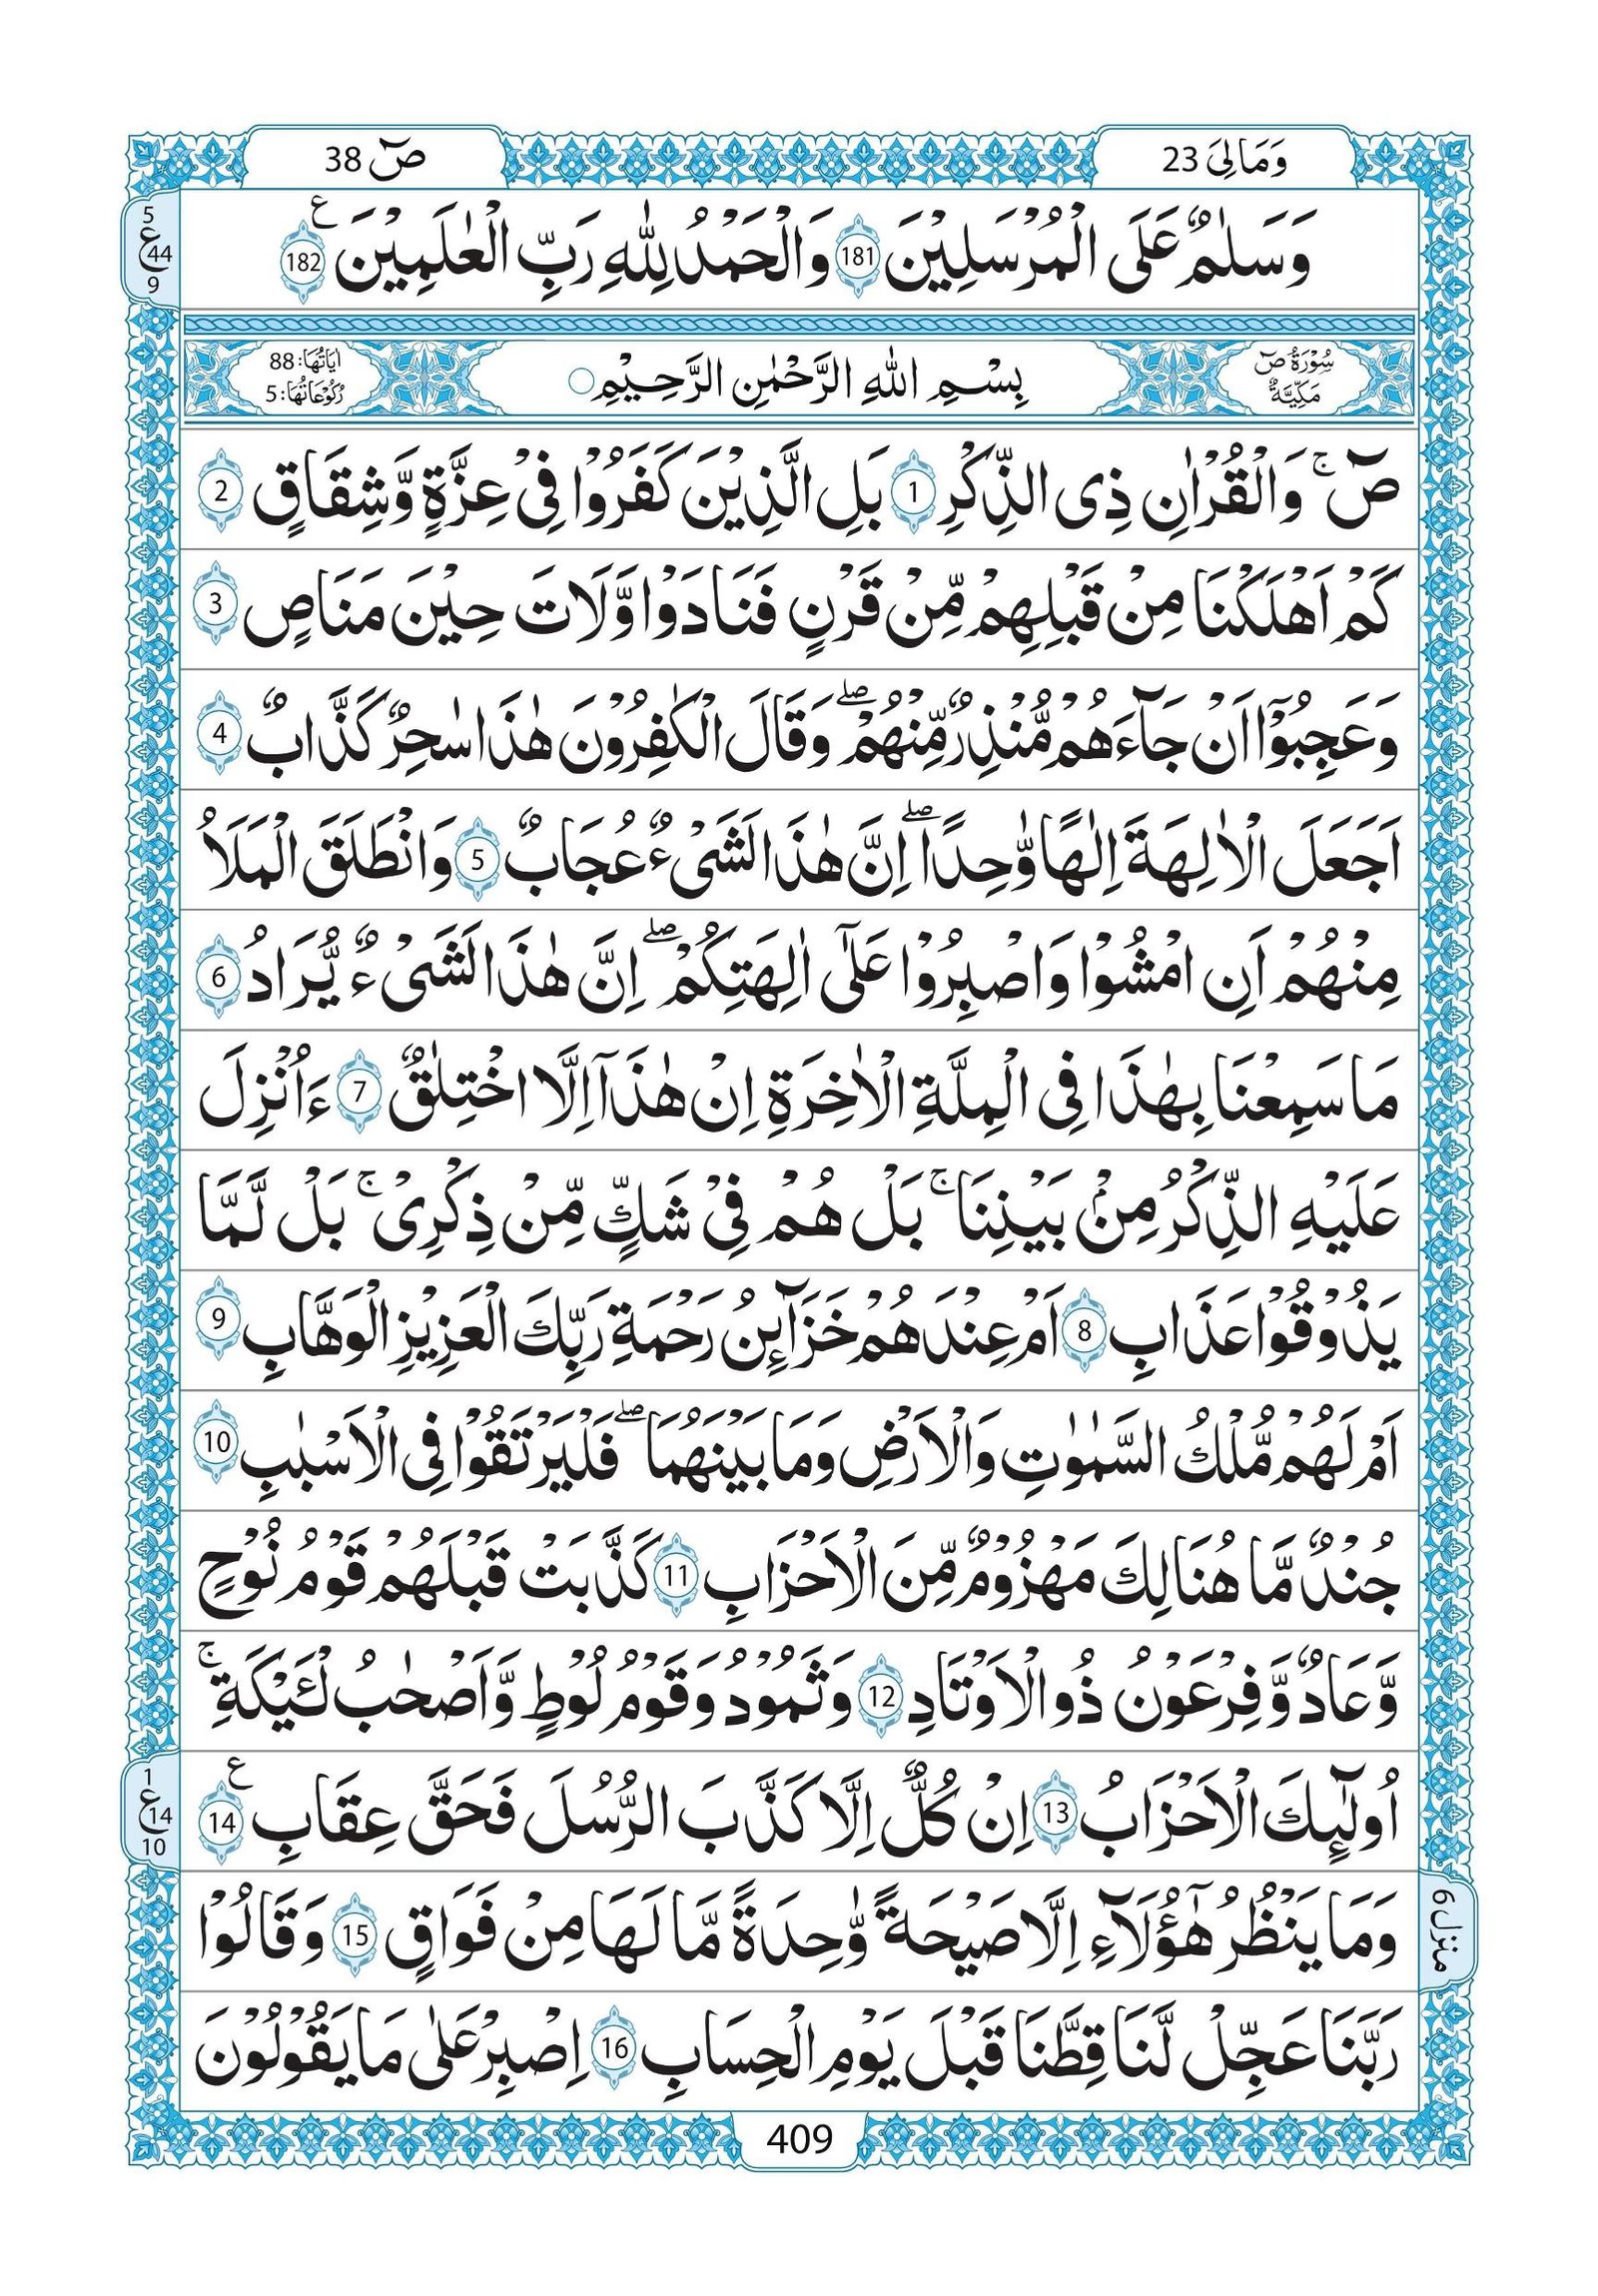 وَمَالِیَ 23
صٓ 38
وَسَلٰمٌ عَلَی الْمُرْسَلِیْنَ 181 وَالْحَمْدُ لِلّٰهِ رَبِّ الْعٰلَمِیْنَ 182 ع
5
ع 44
9
سُوْرَةُ صٓ
مَكِّیَّةٌ
بِسْمِ اللّٰهِ الرَّحْمٰنِ الرَّحِیْمِ ○
اٰیَاتُهَا: 88
رُكُوْعَاتُهَا: 5
صٓ ۚ وَالْقُرْاٰنِ ذِی الذِّكْرِ 1 بَلِ الَّذِیْنَ كَفَرُوْا فِیْ عِزَّةٍ وَّشِقَاقٍ 2
كَمْ اَهْلَكْنَا مِنْ قَبْلِهِمْ مِّنْ قَرْنٍ فَنَادَوْا وَّلَاتَ حِیْنَ مَنَاصٍ 3
وَعَجِبُوْۤا اَنْ جَآءَهُمْ مُّنْذِرٌ مِّنْهُمْ ۖ وَقَالَ الْكٰفِرُوْنَ هٰذَا سٰحِرٌ كَذَّابٌ 4
اَجَعَلَ الْاٰلِهَةَ اِلٰهًا وّٰحِدًا ۖ اِنَّ هٰذَا لَشَیْءٌ عُجَابٌ 5 وَانْطَلَقَ الْمَلَاُ
مِنْهُمْ اَنِ امْشُوْا وَاصْبِرُوْا عَلٰۤی اٰلِهَتِكُمْ ۖ اِنَّ هٰذَا لَشَیْءٌ یُّرَادُ 6
مَا سَمِعْنَا بِهٰذَا فِی الْمِلَّةِ الْاٰخِرَةِ اِنْ هٰذَاۤ اِلَّا اخْتِلٰقٌ 7 ءَاُنْزِلَ
عَلَیْهِ الذِّكْرُ مِنْۢ بَیْنِنَا ۚ بَلْ هُمْ فِیْ شَكٍّ مِّنْ ذِكْرِیْ ۚ بَلْ لَّمَّا
یَذُوْقُوْا عَذَابِ 8 اَمْ عِنْدَهُمْ خَزَآىِٕنُ رَحْمَةِ رَبِّكَ الْعَزِیْزِ الْوَهَّابِ 9
اَمْ لَهُمْ مُّلْكُ السَّمٰوٰتِ وَالْاَرْضِ وَمَا بَیْنَهُمَا ۖ فَلْیَرْتَقُوْا فِی الْاَسْبٰبِ 10
جُنْدٌ مَّا هُنَالِكَ مَهْزُوْمٌ مِّنَ الْاَحْزَابِ 11 كَذَّبَتْ قَبْلَهُمْ قَوْمُ نُوْحٍ
وَّعَادٌ وَّفِرْعَوْنُ ذُو الْاَوْتَادِ 12 وَثَمُوْدُ وَقَوْمُ لُوْطٍ وَّاَصْحٰبُ لْـَٔیْكَةِ ۚ
اُولٰٓىِٕكَ الْاَحْزَابُ 13 اِنْ كُلٌّ اِلَّا كَذَّبَ الرُّسُلَ فَحَقَّ عِقَابِ 14 ع
1
ع 14
10
وَمَا یَنْظُرُ هٰۤؤُلَآءِ اِلَّا صَیْحَةً وّٰحِدَةً مَّا لَهَا مِنْ فَوَاقٍ 15 وَقَالُوْا
منزل 6
رَبَّنَا عَجِّلْ لَّنَا قِطَّنَا قَبْلَ یَوْمِ الْحِسَابِ 16 اِصْبِرْ عَلٰی مَا یَقُوْلُوْنَ
409